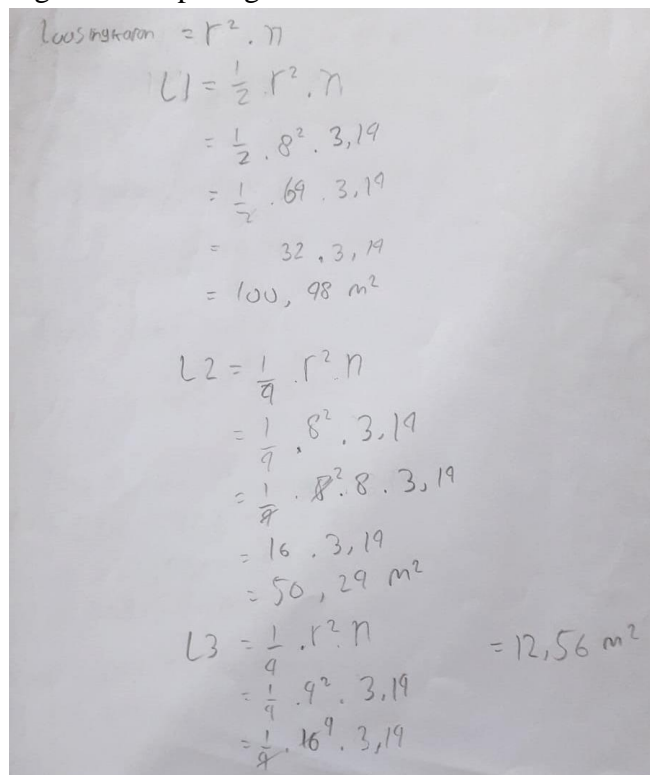 Luas lingkaran = r² . π
L1 = 1/2 r² . π
= 1/2 . 8² . 3,14
= 1/2 . 64 . 3,14
= 32 . 3,14
= 100,48 m²
L2 = 1/4 . r² . π
= 1/4 . 8² . 3,14
= 1/4 . 8² . 8 . 3,14
= 16 . 3,14
= 50,24 m²
L3 = 1/4 . r² π = 12,56 m²
= 1/4 . 4² . 3,14
= 1/4 . 16⁴ . 3,14